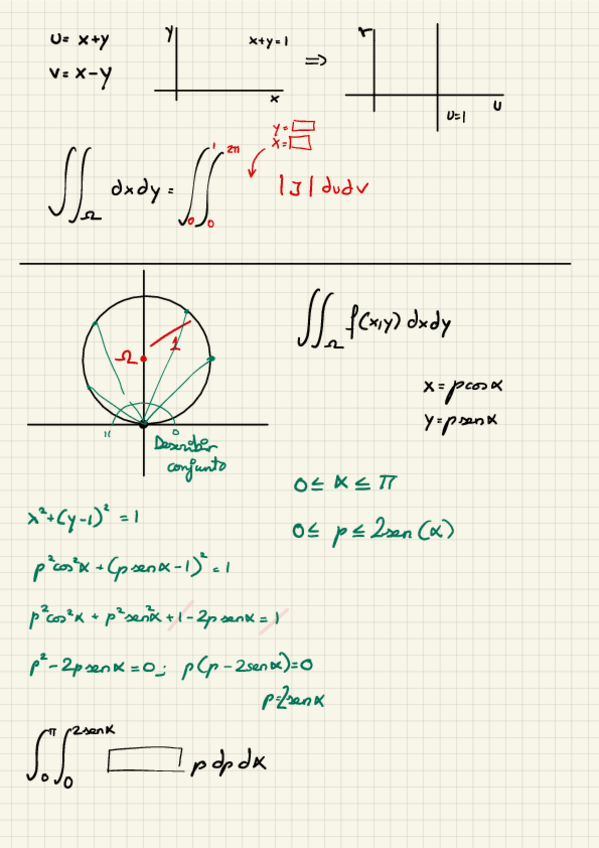 u = x+y
v = x-y
y
x
x+y=1
⇒
r
u
u=1
∬_Ω dxdy = ∫_0^1 ∫_0^{2π} |J| dudv
y=□
x=□
Ω
1
π
0
Describir
conjunto
∬_Ω f(x,y) dxdy
x=ρcosα
y=ρsenα
0 ≤ α ≤ π
0 ≤ ρ ≤ 2sen(α)
x²+(y-1)² = 1
ρ²cos²α + (ρsenα-1)² = 1
ρ²cos²α + ρ²sen²α + 1 - 2ρsenα = 1
ρ² - 2ρsenα = 0; ρ(ρ-2senα)=0
ρ=2senα
∫_0^π ∫_0^{2senα} □ ρ dρ dα